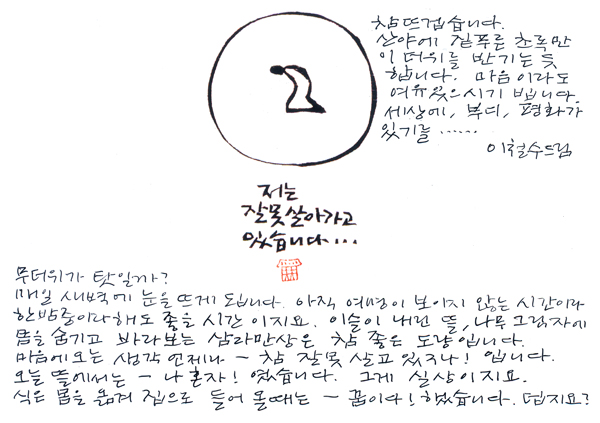 참 뜨겁습니다.
산야에 짙푸른 초록만
이 더위를 반기는 듯
합니다. 마음이라도
여유있으시기 빕니다.
세상에, 부디, 평화가
있기를 ......
이철수드림
저는
잘못 살아가고
있습니다...
무더위가 탓일까?
매일 새벽에 눈을 뜨게 됩니다. 아직 여명이 보이지 않는 시간이라
한밤중이라해도 좋을 시간이지요. 이슬이 내린 뜰, 나무그림자에
몸을 숨기고 바라보는 삼라만상은 참 좋은 도량입니다.
마음에 오는 생각 언제나 - 참 잘못 살고 있구나! 입니다.
오늘 뜰에서는 - 나 혼자! 였습니다. 그게 실상이지요.
식은 몸을 옮겨 집으로 들어 올때는 - 꿈이다! 했습니다. 덥지요?